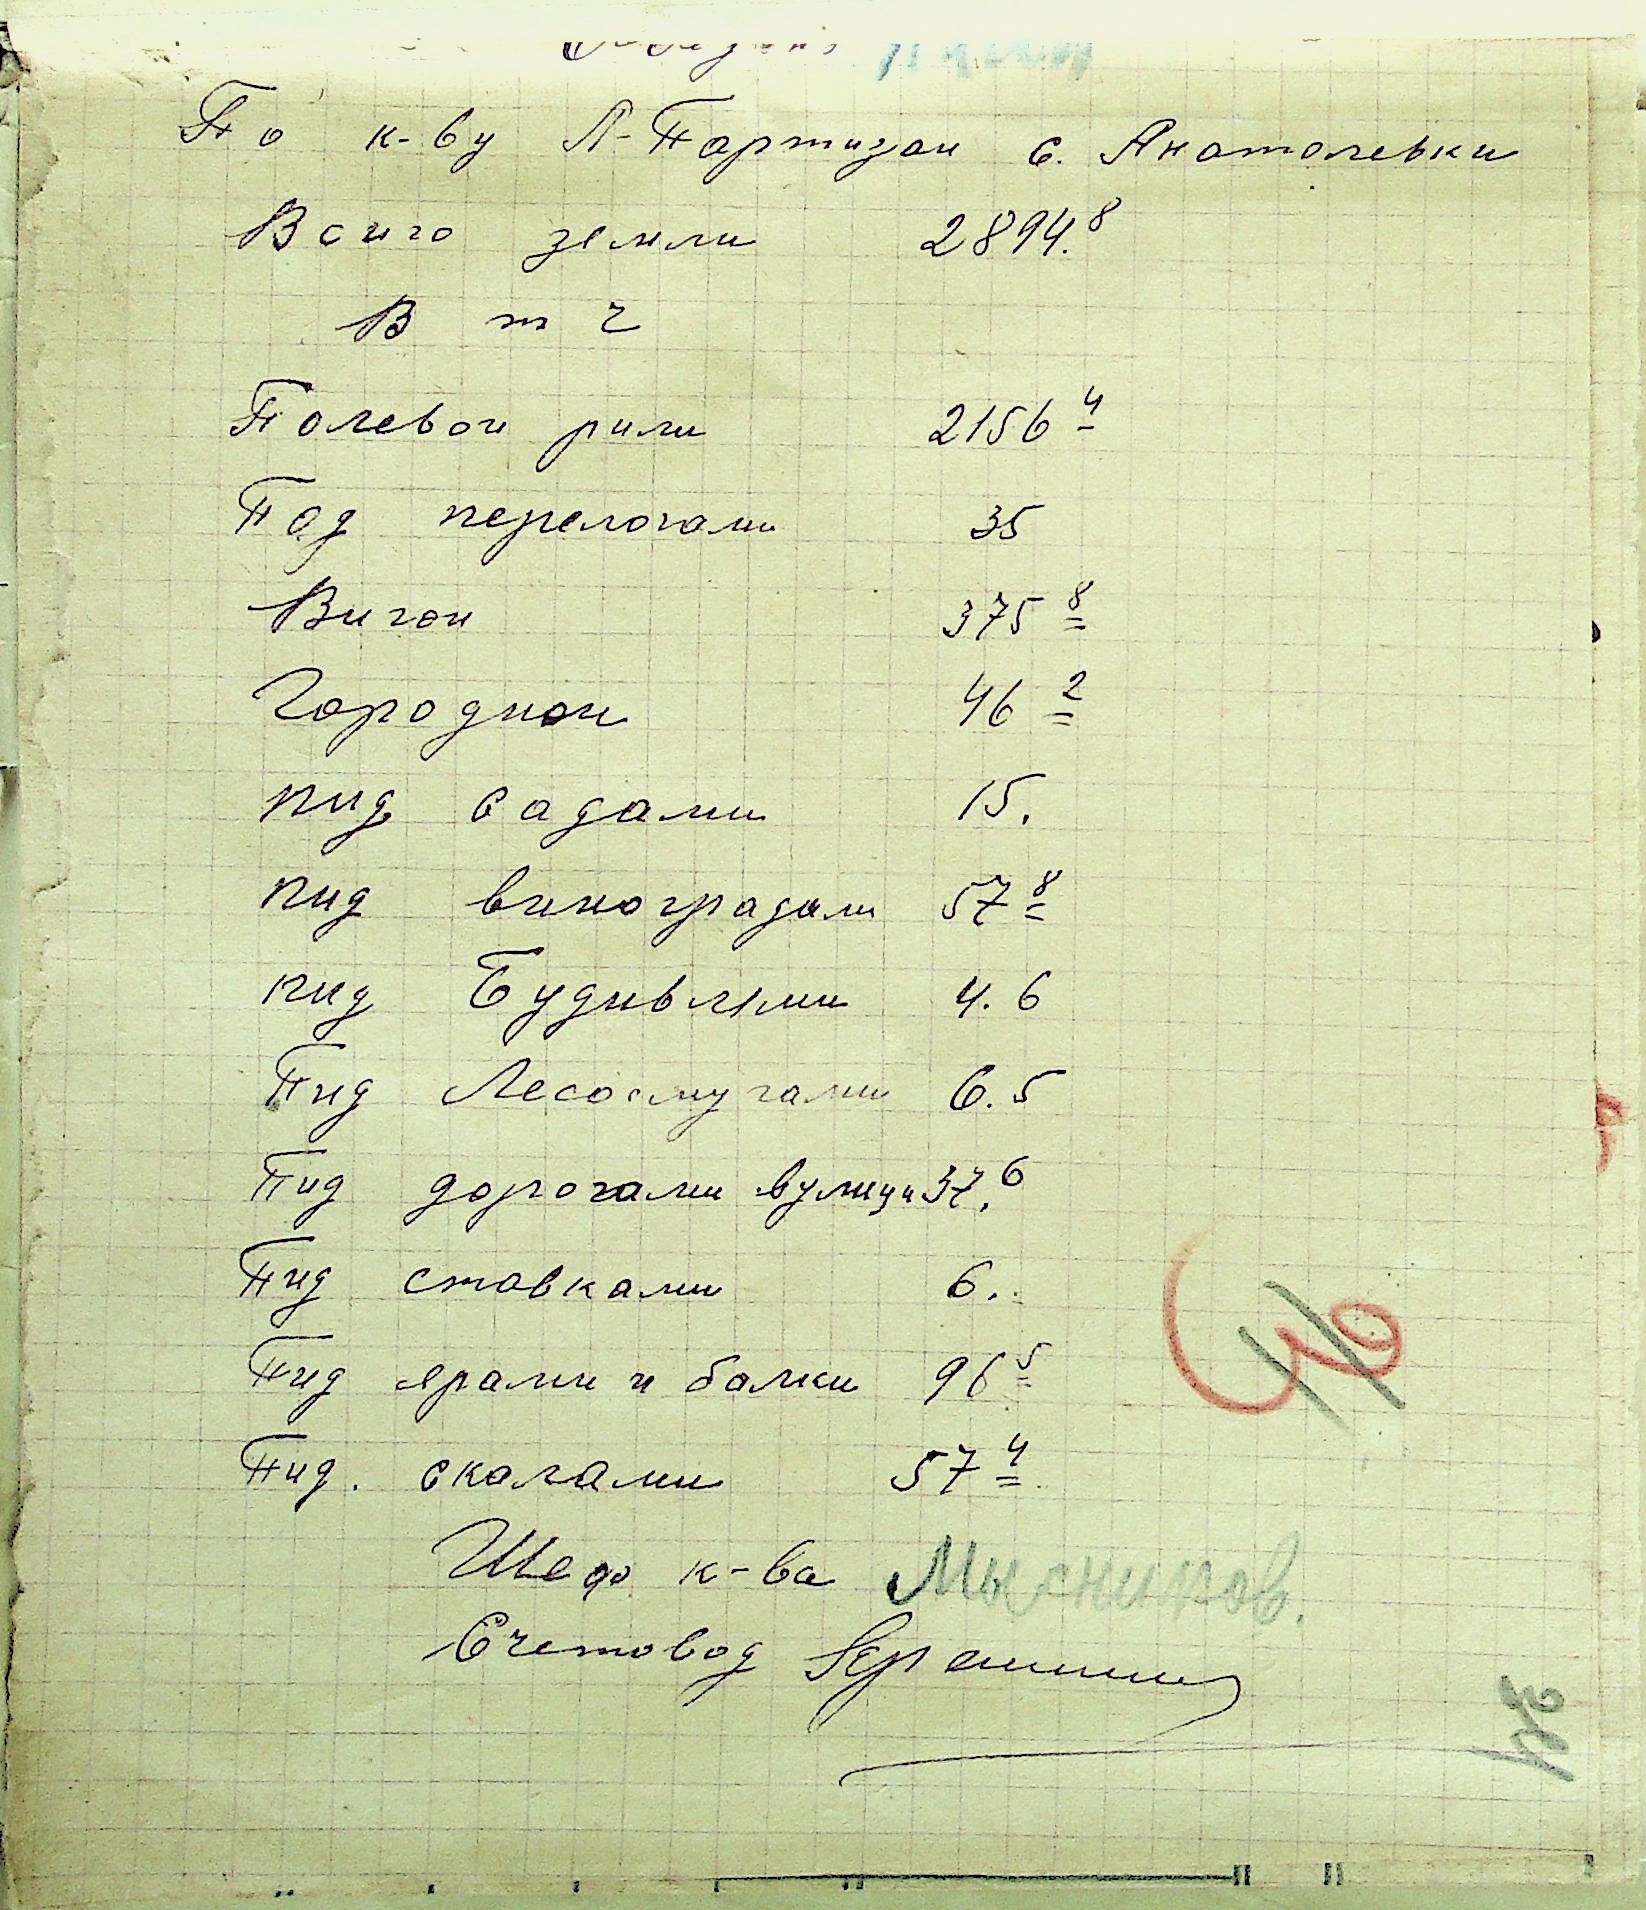 По к-ву Л-Партизан с. Анатолевки
Всиго земли 2894.8
В т ч
Полевои рили 2156 4
Под перелогами 35
Вигон 375 8
Городнои 46 2
пид садами 15.
пид виноградами 57 8
пид Будивлями 4.6
Пид Лесосмугами 6.5
Пид дорогами вулици 37.6
Пид ставками 6.
Пид ярами и балки 96 5
Пид. скалами 57 4
Шеф к-ва Мысников.
Счетовод